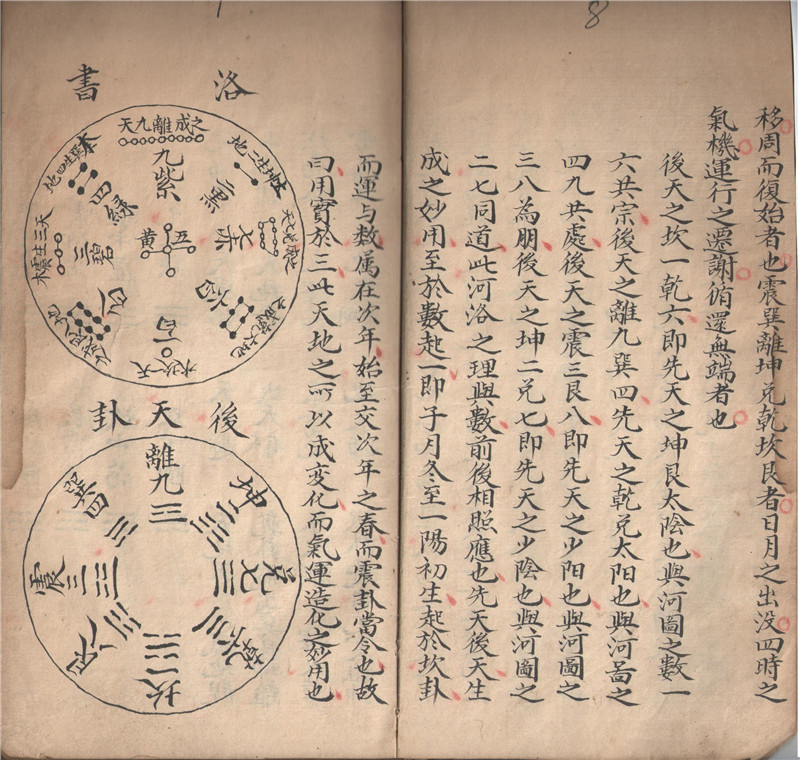 8
移周而復始者也震巽離坤兌乾坎艮者日月之出没四時之
氣機運行之遷謝循還無端者也
後天之坎一乾六即先天之坤艮太陰也與河圖之數一
六共宗後天之離九巽四先天之乾兌太阳也與河啚之
四九共處後天之震三艮八即先天之少阳也與河圖之
三八為朋後天之坤二兌七即先天之少陰也與河圖之
二七同道此河洛之理與數前後相照應也先天後天生
成之妙用至於數起一即子月冬至一陽初生起於坎卦
而運与数属在次年始至交次年之春而震卦當令也故
曰用實於三此天地之所以成变化而氣運造化之妙用也
洛書
天九離成之
九紫
四綠
二黒
黄五
三碧
七赤
一白
八白
水坎一天
後天卦
離九
坤二
兌七
乾六
坎一
艮八
震三
巽四